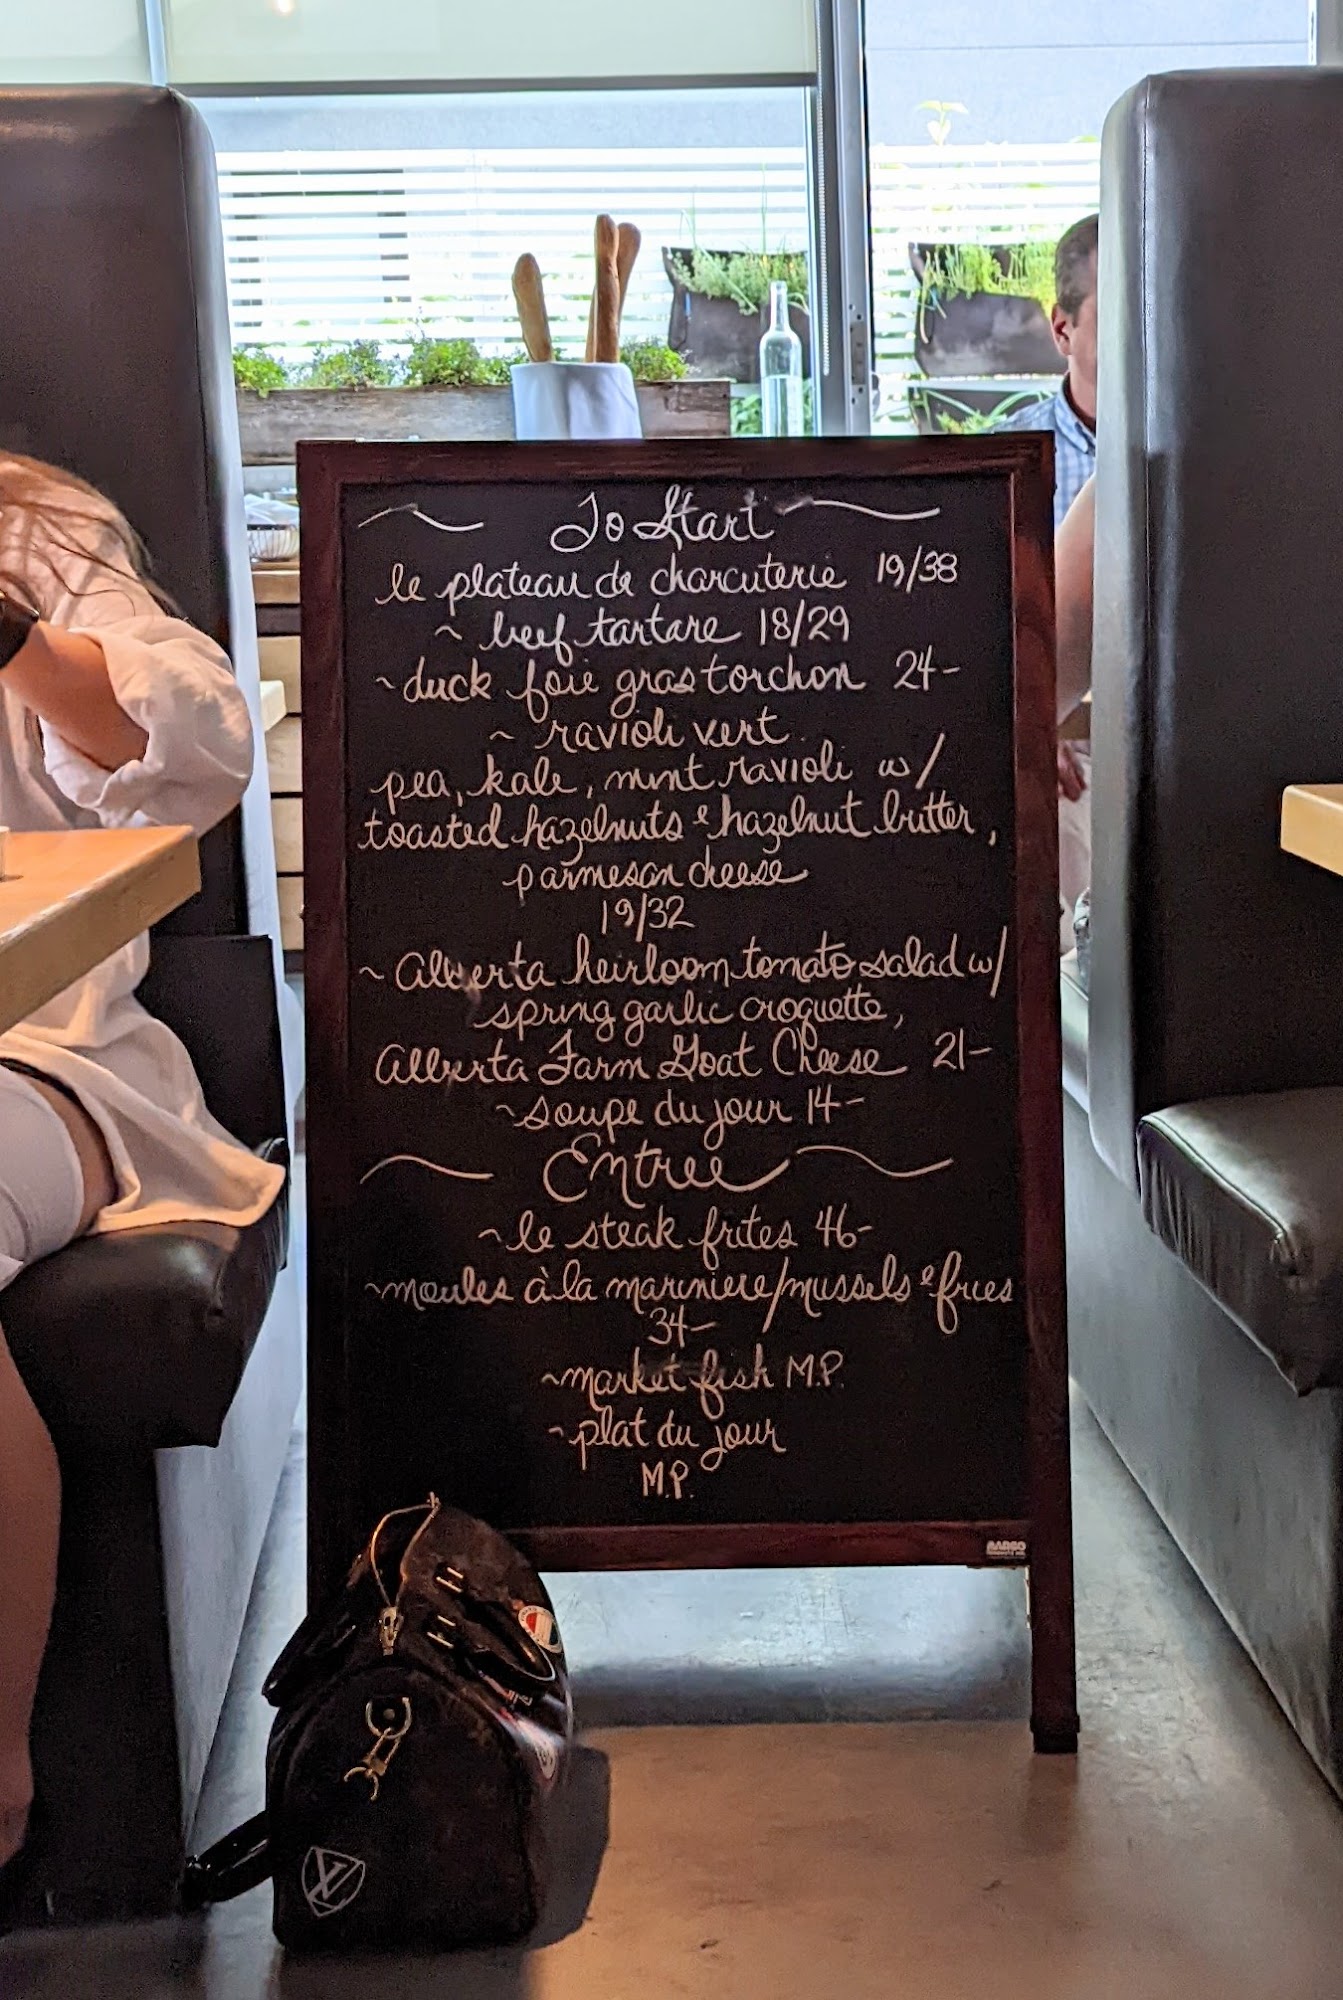 To Start
le plateau de charcuterie 19/38
~ beef tartare 18/29
~duck foie gras torchon 24-
~ ravioli vert
pea, kale, mint ravioli w/
toasted hazelnuts & hazelnut butter,
parmesan cheese
19/32
~ Alberta heirloom tomato salad w/
spring garlic croquette,
Alberta Farm Goat Cheese 21-
~soupe du jour 14-
Entree
~le steak frites 46-
~moules à la mariniere/mussels & fries
34-
~market fish M.P.
~plat du jour
M.P.
AARCO